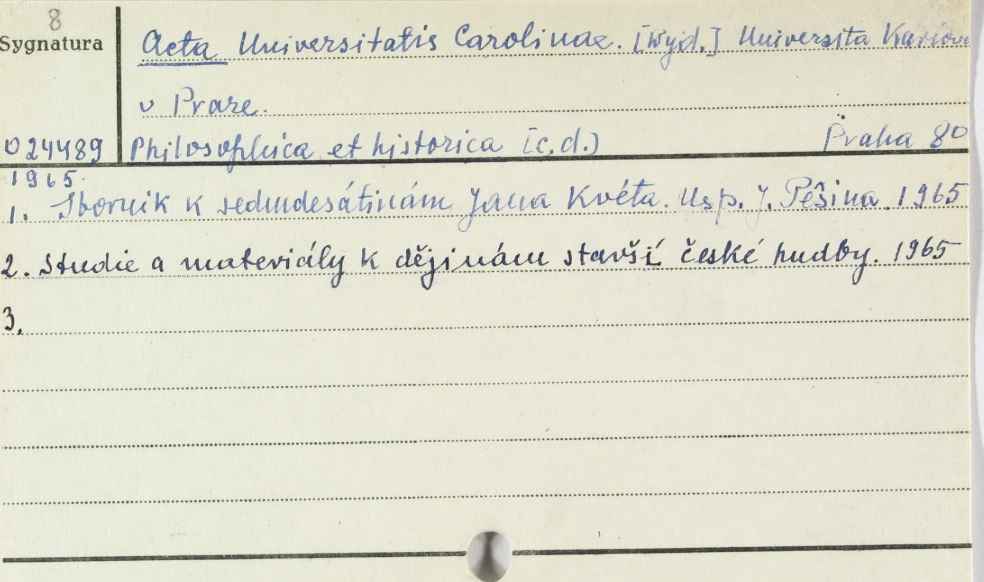 8
Sygnatura
Acta Universitatis Carolinae. [Wyd.] Universita Karlova
v Praze.
024489 Philosophica et historica [c.d.) Praha 8⁰
1965.
1. Sborník k sedmdesátinám Jana Květa. Usp. J. Pěšina. 1965
2. Studie a materiály k dějinám starší české hudby. 1965
3.